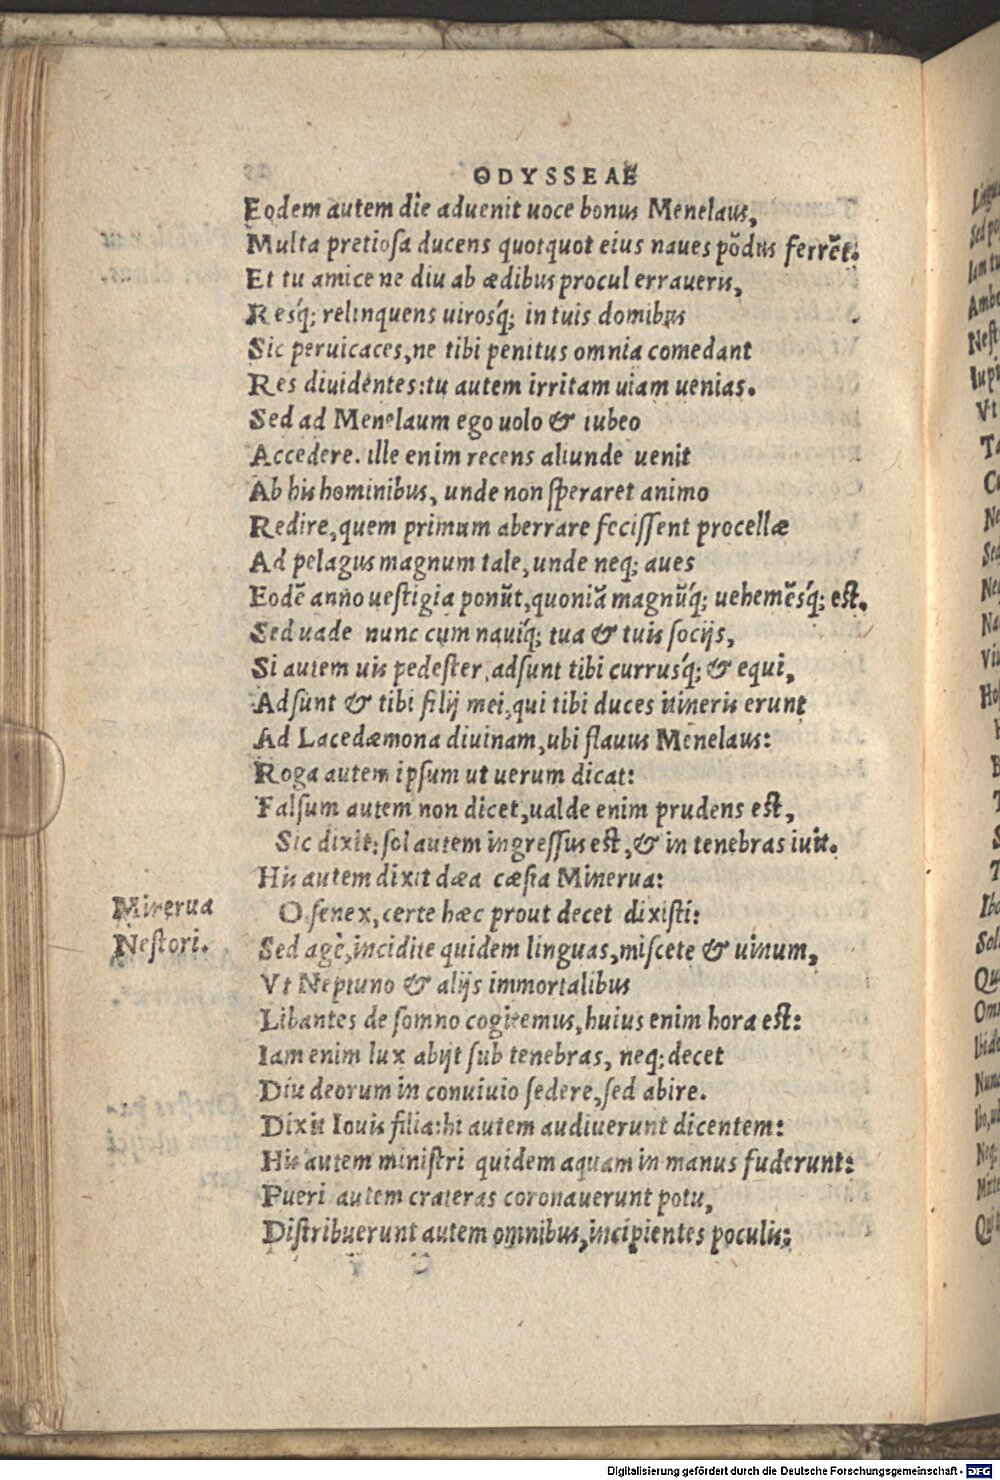 ODYSSEAE
Eodem autem die aduenit uoce bonus Menelaus,
Multa pretiosa ducens quotquot eius naues põdus ferrẽt.
Et tu amice ne diu ab ædibus procul erraueris,
Resq́; relinquens uirosq́; in tuis domibus
Sic peruicaces, ne tibi penitus omnia comedant
Res diuidentes: tu autem irritam uiam uenias.
Sed ad Menelaum ego uolo & iubeo
Accedere. ille enim recens aliunde uenit
Ab his hominibus, unde non speraret animo
Redire, quem primum aberrare fecissent procellæ
Ad pelagus magnum tale, unde neq; aues
Eodẽ anno uestigia ponũt, quoniã magnũq́; uehemẽsq́; est.
Sed uade nunc cum nauiq́; tua & tuis socijs,
Si autem uis pedester, adsunt tibi currusq́; & equi,
Adsunt & tibi filij mei, qui tibi duces itineris erunt
Ad Lacedæmona diuinam, ubi flauus Menelaus:
Roga autem ipsum ut uerum dicat:
Falsum autem non dicet, ualde enim prudens est,
Sic dixit: sol autem ingressus est, & in tenebras iuit.
His autem dixit dæa cæsia Minerua:
Minerua
Nestori.
O senex, certe hæc prout decet dixisti:
Sed agè, incidite quidem linguas, miscete & uinum,
Vt Neptuno & alijs immortalibus
Libantes de somno cogitemus, huius enim hora est:
Iam enim lux abijt sub tenebras, neq; decet
Diu deorum in conuiuio sedere, sed abire.
Dixit Iouis filia: hi autem audiuerunt dicentem:
His autem ministri quidem aquam in manus fuderunt:
Pueri autem crateras coronauerunt potu,
Distribuerunt autem omnibus, incipientes poculis:
Digitalisierung gefördert durch die Deutsche Forschungsgemeinschaft - DFG